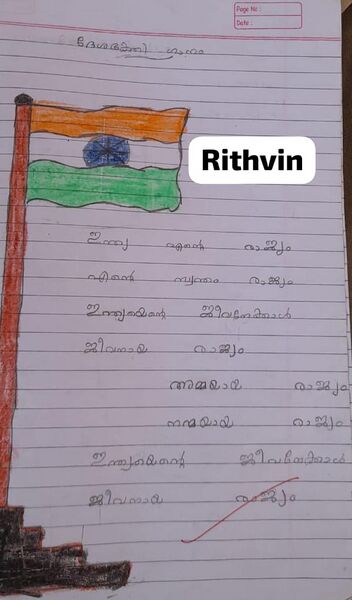 Page No :
Date :
ദേശഭക്തി ഗാനം
Rithvin
ഇന്ത്യ എന്റെ രാജ്യം
എന്റെ സ്വന്തം രാജ്യം
ഇന്ത്യയെന്റെ ജീവനേക്കാൾ
ജീവനായ രാജ്യം
അമ്മയായ രാജ്യം
നന്മയായ രാജ്യം
ഇന്ത്യയെന്റെ ജീവനേക്കാൾ
ജീവനായ രാജ്യം